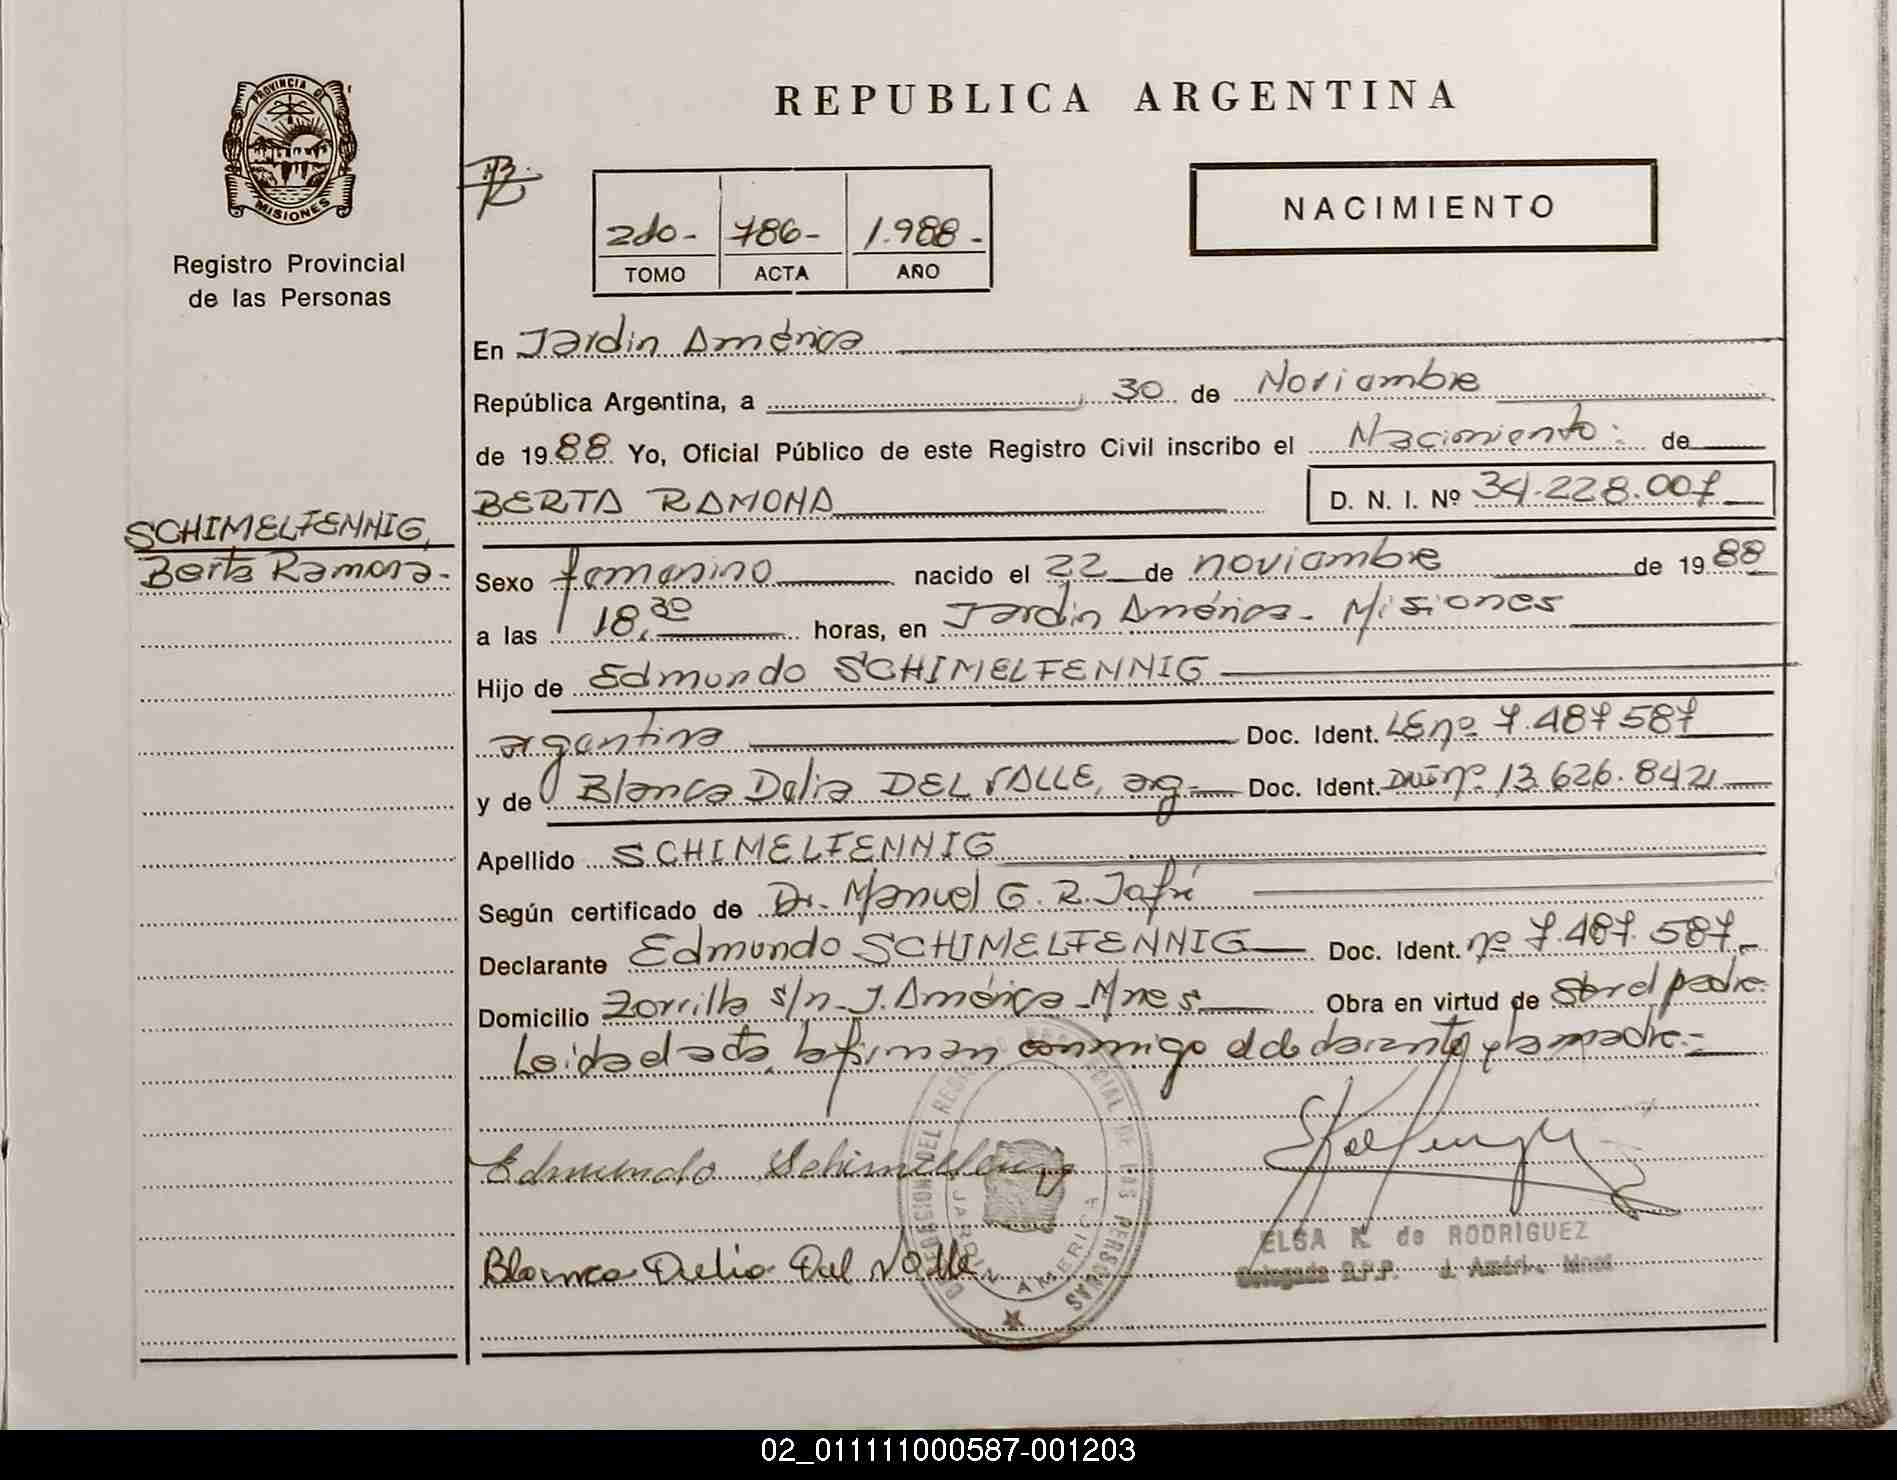 PROVINCIA DE
MISIONES
Registro Provincial
de las Personas
REPUBLICA ARGENTINA
NACIMIENTO
2do- 786- 1.988-
TOMO ACTA AÑO
En Jardin América
República Argentina, a 30 de Noviembre
de 1988 Yo, Oficial Público de este Registro Civil inscribo el Nacimiento: de
BERTA RAMONA D. N. I. Nº 34.228.007
SCHIMELFENNIG,
Berta Ramona-
Sexo femenino nacido el 22 de noviembre de 1988
a las 18,30 horas, en Jardin América- Misiones
Hijo de Edmundo SCHIMELFENNIG
argentina Doc. Ident. LE nº 7.487 587
y de Blanca Delia DEL VALLE, arg- Doc. Ident. DNI nº 13.626.842
Apellido SCHIMELFENNIG
Según certificado de Dr. Manuel G. R. Jofré
Declarante Edmundo SCHIMELFENNIG Doc. Ident. nº 7.487.587-
Domicilio Zorrilla s/n- J. América-Mnes Obra en virtud de Ser el padre.
Leida el acta, la firman conmigo el declarante y la madre.-
Edmundo Schimelfening
Blanca Delia Del Valle
DELEGACION DEL REGISTRO PROVINCIAL DE LAS PERSONAS
JARDIN AMERICA
ELSA K. de RODRIGUEZ
Delegada R.P.P. J. Améri. Mnes
02_011111000587-001203